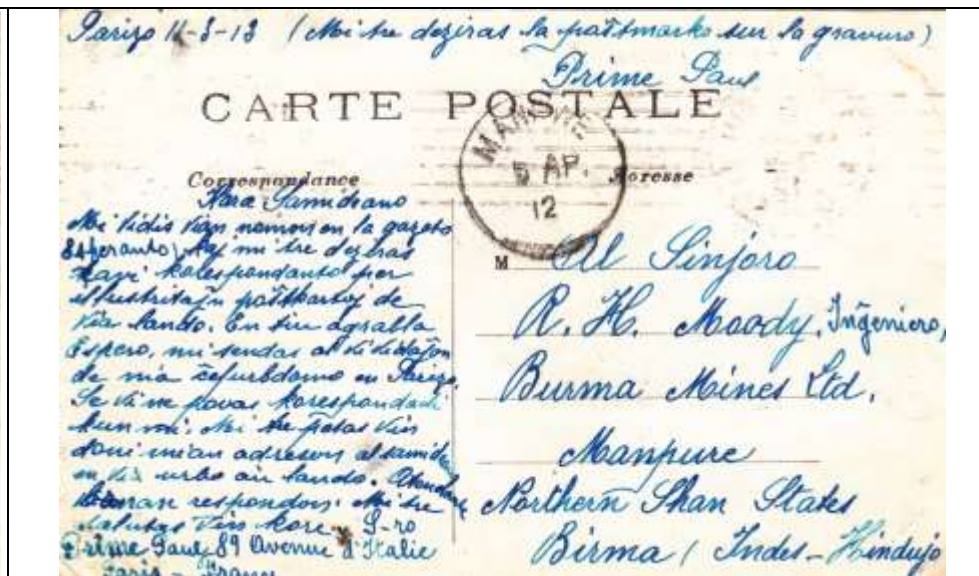 Parizo 11-3-12 (Mi tre deziras la poŝtmarko sur la gravuro)
Prime Paul
CARTE POSTALE
MANPURE
5 AP.
12
Correspondance
Adresse
Kara Samideano
Mi vidis vian nomon en la gazeto
Esperanto, kaj mi tre deziras
havi korespondanto per
illustritajn poŝtkartoj de
via lando. En tiu agrabla
Espero, mi sendas al vi vidaĵon
de mia ĉefurbdomo en Parizo.
Se vi ne povas korespondadi
kun mi. Mi tre petas vin
doni mian adreson al samide
en via urbo aŭ lando. Atendante
respondon. Mi tre
salutas vin kore. S-ro
Prime Paul, 89 Avenue d'Italie
Paris - France
M Al Sinjoro
R. H. Moody, Inĝeniero,
Burma Mines Ltd.
Manpure
Northern Shan States
Birma (Indes-Hindujo